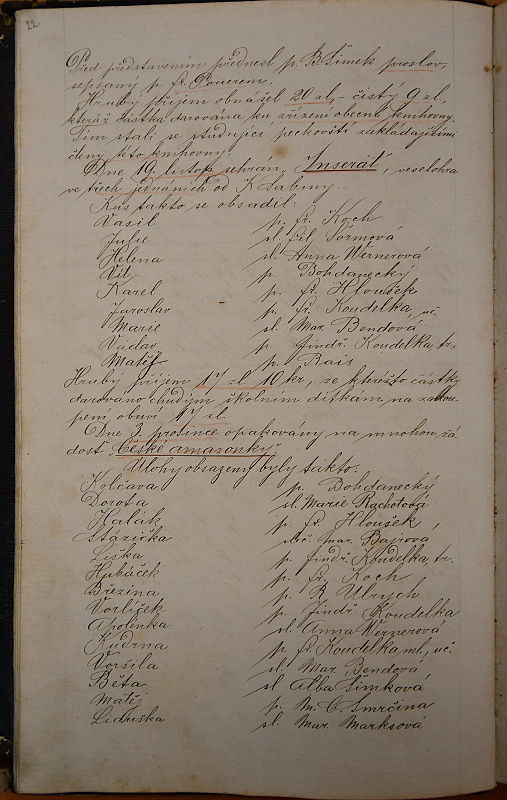 22
Před představením přednesl p. B Šimek proslov,
sepsaný p. fr. Pouerem.
Hrubý příjem obnášel 20 zl, – čistý 9 zl,
kteráž částka darována ku zřízení obecné knihovny.
Tím stali se studující peckovští zakládajícími
členy této knihovny.
Dne 19. listop. sehrán „Inserát", veselohra
ve třech jednáních od K Sabiny.
Kus takto se obsadil:
Vasil p. fr. Koch
Julie sl. Lil. Šormová
Helena sl. Anna Wernerová
Vít p. Bohdanecký
Karel p. fr. Hloušek
Jaroslav p. fr. Koudelka, uč.
Marie sl. Mar. Bendová
Václav p. Jindř. Koudelka, tr.
Matěj p. Rais
Hrubý příjem 17 zl 10 kr, ze kteréžto částky
darováno chudým školním dítkám na zakou-
pení obuvi 17 zl.
Dne 3. prosince opakovány na mnohou žá-
dost „České amazonky"
Úlohy obsazeny byly takto:
Kolčava p. Bohdanecký
Dorota sl. Marie Rachotová
Halák p. fr. Hloušek,
Stázička slč. Mar. Bajrova
Liška p. Jindř. Koudelka, tr.
Hubáček p. fr. Koch
Březina p. R Ulrych
Vorlíček p. Jindř. Koudelka
Apolenka sl. Anna Wernerová
Kudrna p. fr. Koudelka ml., uč.
Voršila sl. Mar. Bendová
Běta sl Alba Šimková
Matěj p. M. C. Smrčina
Liduška sl. Mar. Marksová